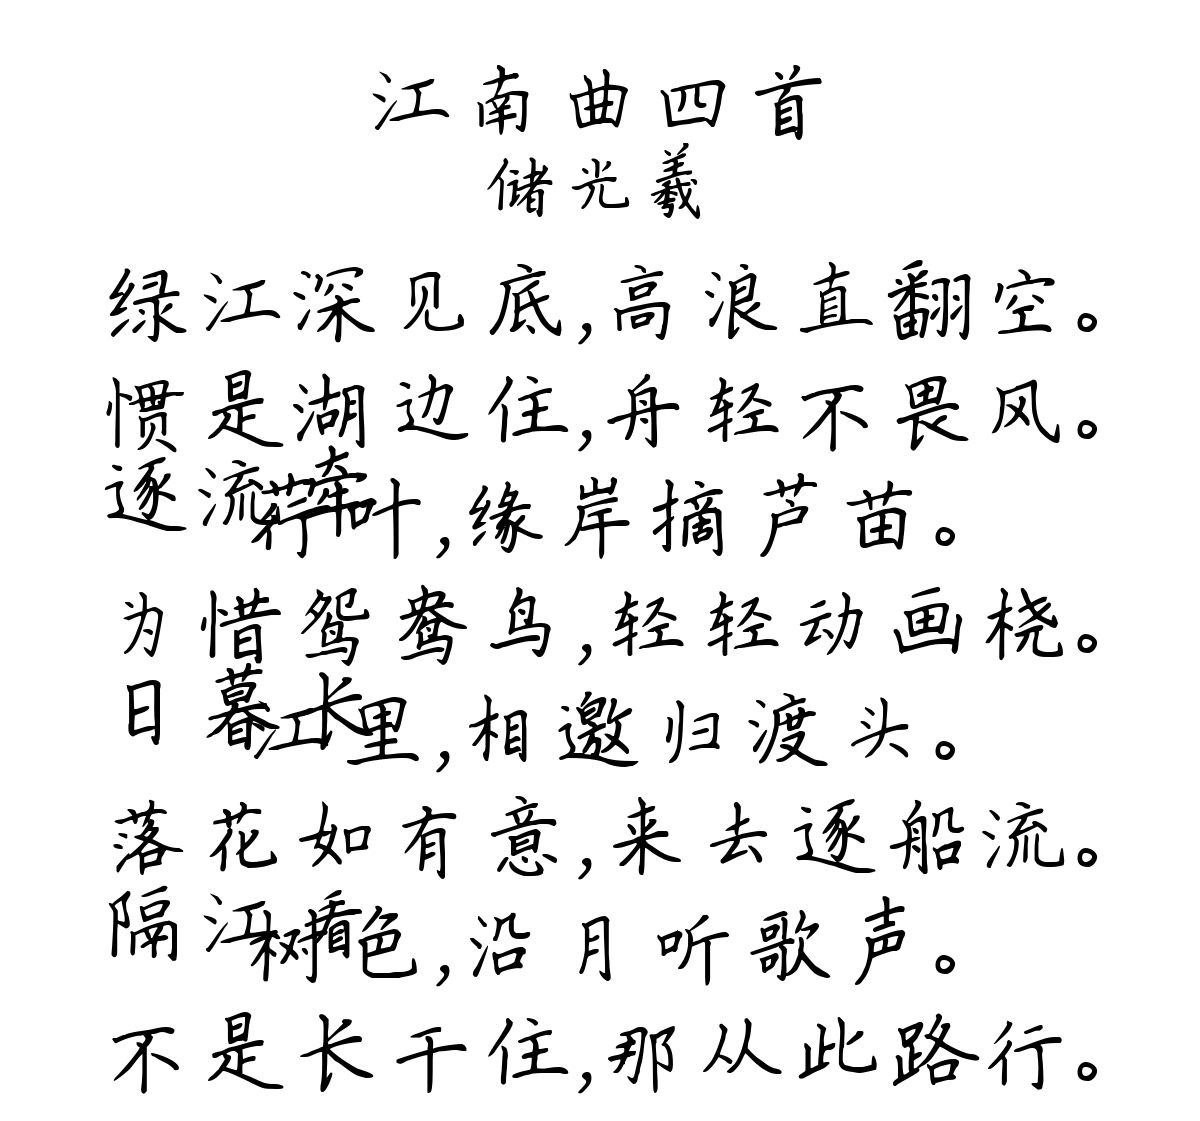 江南曲四首
储光羲
绿江深见底,高浪直翻空。
惯是湖边住,舟轻不畏风。
逐流牵荇叶,缘岸摘芦苗。
为惜鸳鸯鸟,轻轻动画桡。
日暮长江里,相邀归渡头。
落花如有意,来去逐船流。
隔江看树色,沿月听歌声。
不是长干住,那从此路行。